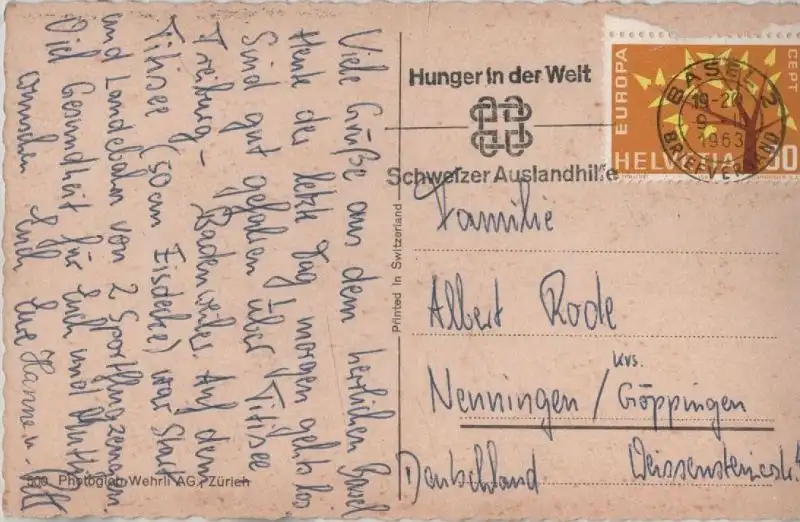 Viele Grüße aus dem herrlichen Basel
Heute der letzte Tag, morgen gehts los
Sind gut gefahren über Titisee
Freiburg - Badenweiler. Auf dem
Titisee (50 cm Eisdecke) war Start
und Landebahn von 2 Sportflugzeugen.
Viel Gesundheit für Euch und Mutti
wünschen Euch Eure Hanne u.
500 Photoglob-Wehrli AG., Zürich
Printed in Switzerland
Hunger in der Welt
Schweizer Auslandhilfe
EUROPA
CEPT
HELVETIA 50
BASEL 2
19-20
1963
BRIEFVERSAND
Familie
Albert Rode
Nenningen / Kr. Göppingen
Deutschland Weissensteinerstr.